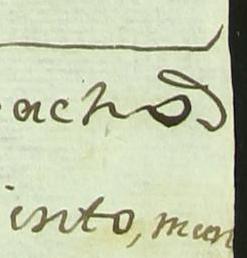 achos
iento, mun